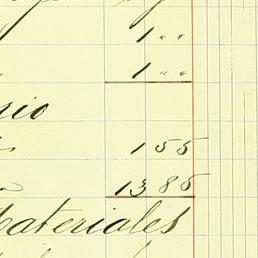 1 " "
1 " "
sio
155
1385
Materiales